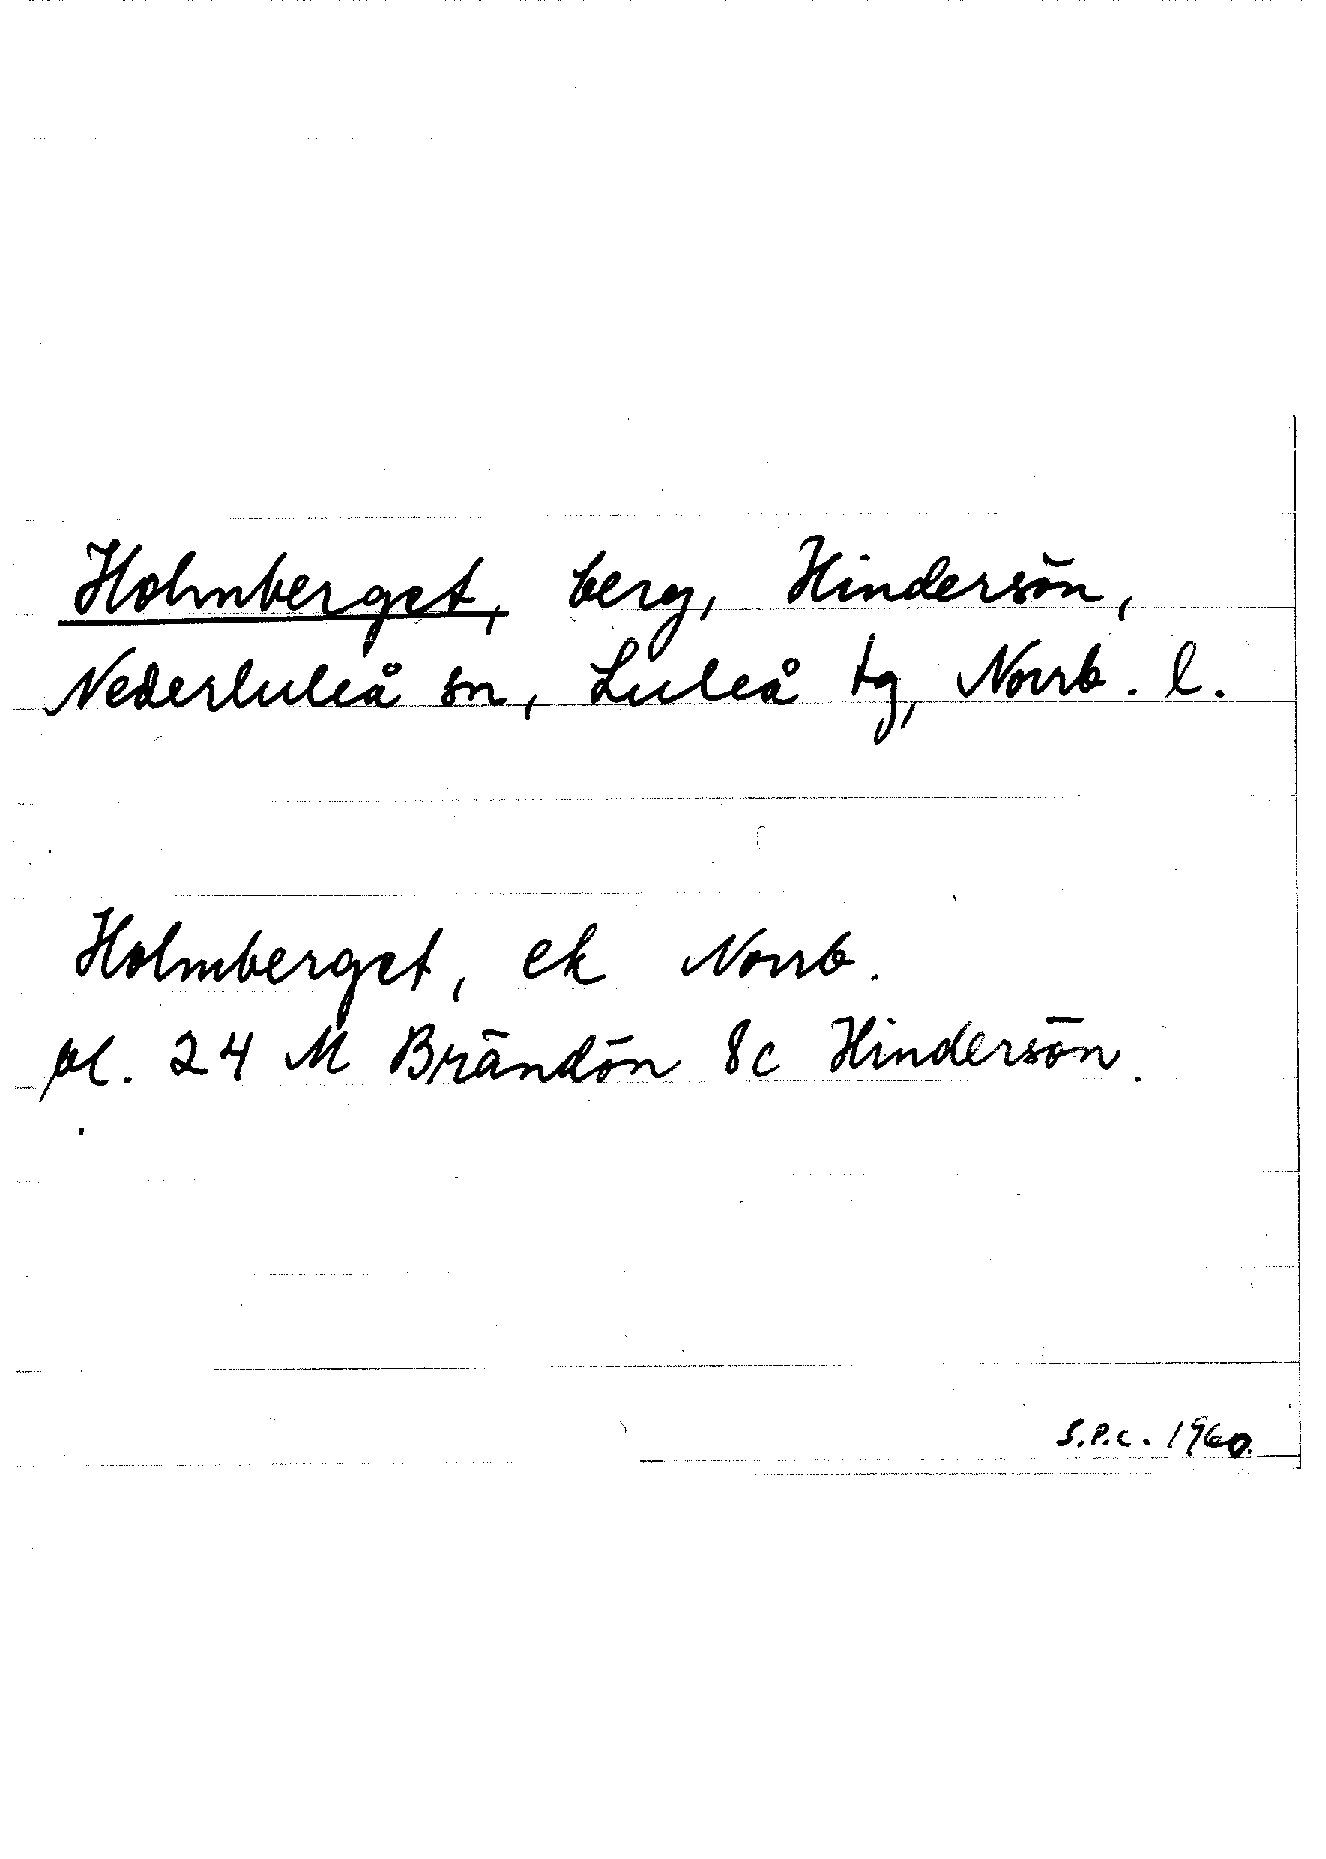 Holmberget, berg, Hindersön,
Nederluleå sn, Luleå tg, Norrb. l.
Holmberget, ek Norrb.
pl. 24 M Brändön 8c Hindersön.
S.P.C. 1960.